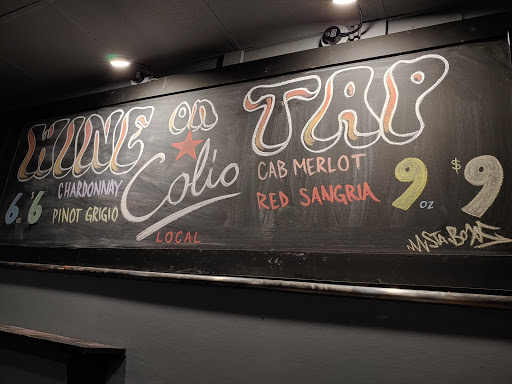 WINE on TAP
6 oz $6
CHARDONNAY
PINOT GRIGIO
Colio
LOCAL
CAB MERLOT
RED SANGRIA
9 oz $9